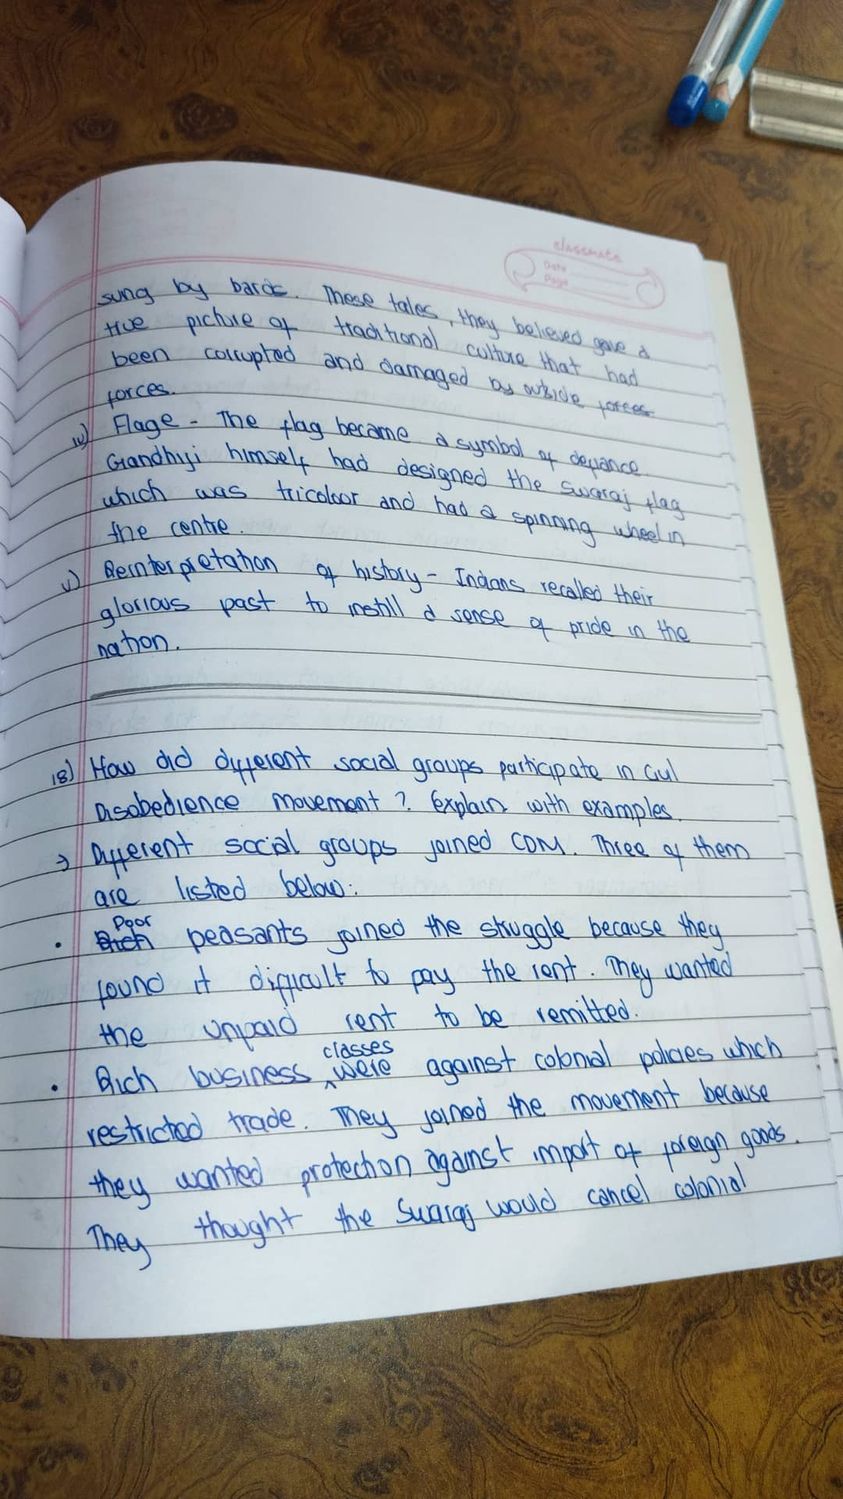 classmate
Date
Page
sung by bards. These tales, they believed gave a
true picture of traditional culture that had
been corrupted and damaged by outside forces
forces.
iv) Flage - The flag became a symbol of defiance.
Gandhiji himself had designed the swaraj flag
which was tricolour and had a spinning wheel in
the centre
v) Reinterpretation of history - Indians recalled their
glorious past to instill a sense of pride in the
nation.
18) How did different social groups participate in Civil
Disobedience movement? Explain with examples.
→ Different social groups joined CDM. Three of them
are listed below:
• Rich Poor peasants joined the struggle because they
found it difficult to pay the rent. They wanted
the unpaid rent to be remitted.
• Rich business classes were against colonial policies which
restricted trade. They joined the movement because
they wanted protection against import of foreign goods.
They thought the Swaraj would cancel colonial